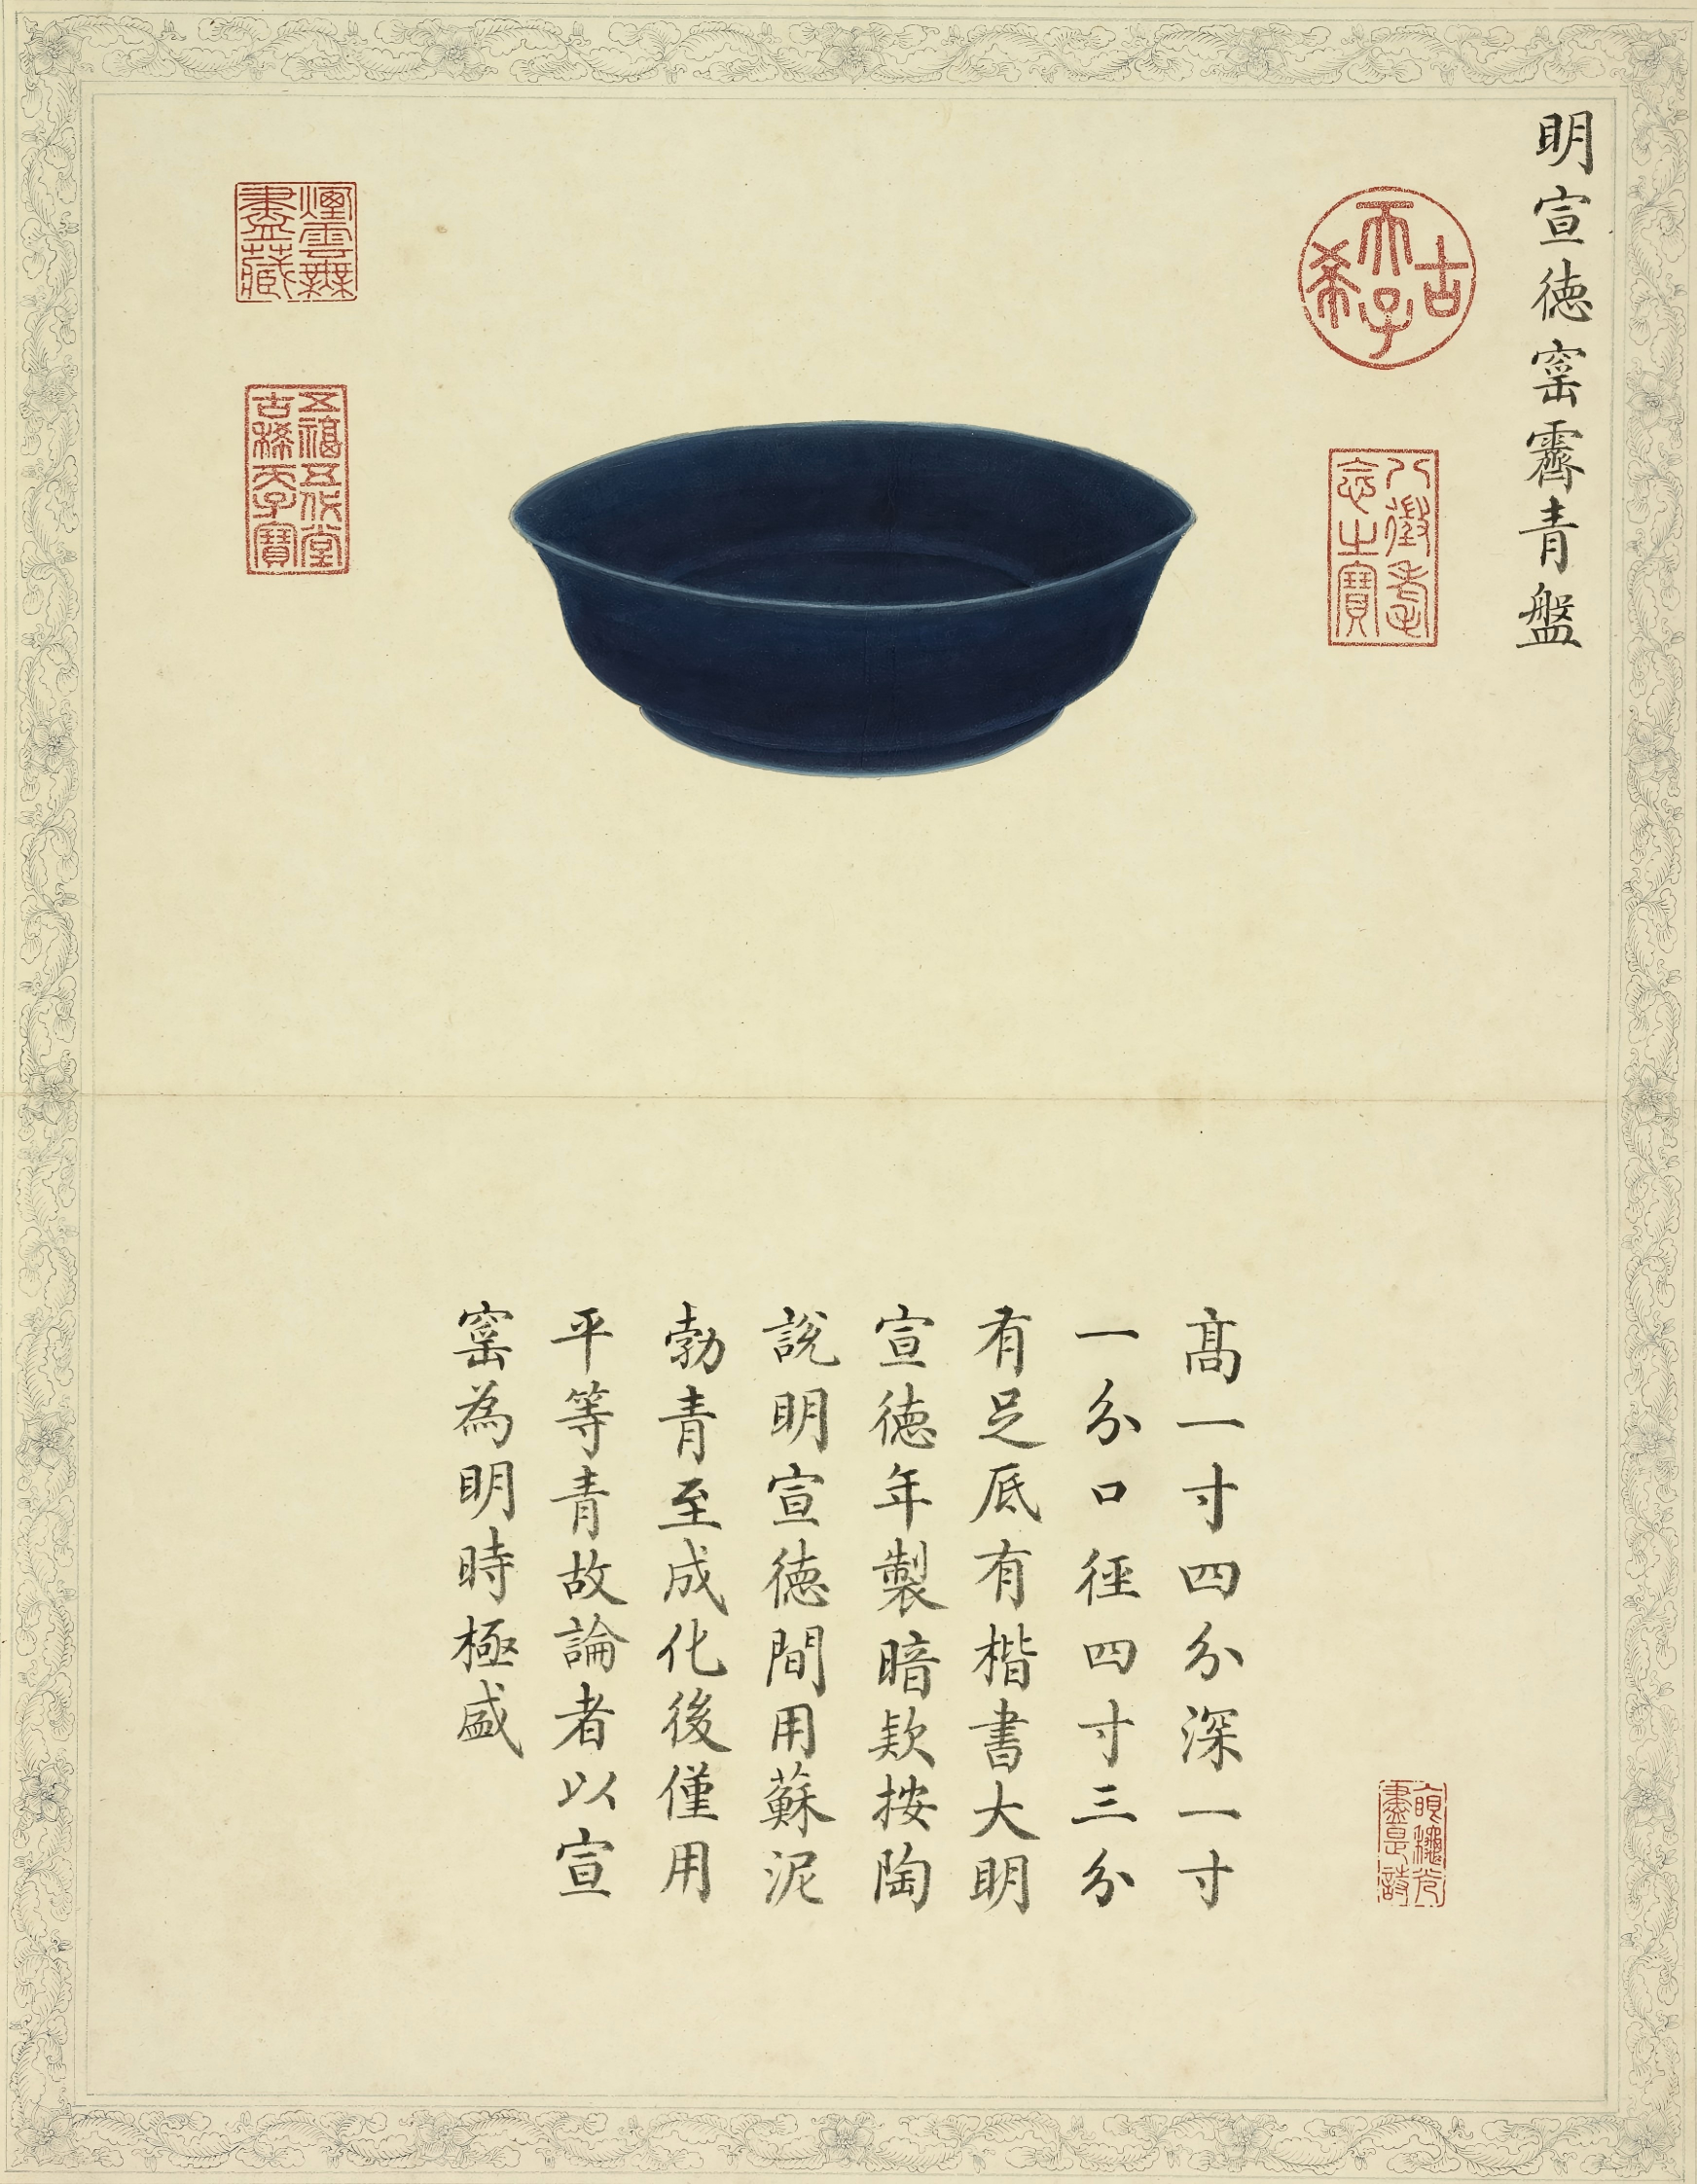 明宣德窰霽青盤
古希天子
八徵耄念之寶
煙雲無盡藏
五福五代堂古稀天子寶
高一寸四分深一寸
一分口徑四寸三分
有足底有楷書大明
宣德年製暗款按陶
說明宣德間用蘇泥
勃青至成化後僅用
平等青故論者以宣
窰為明時極盛